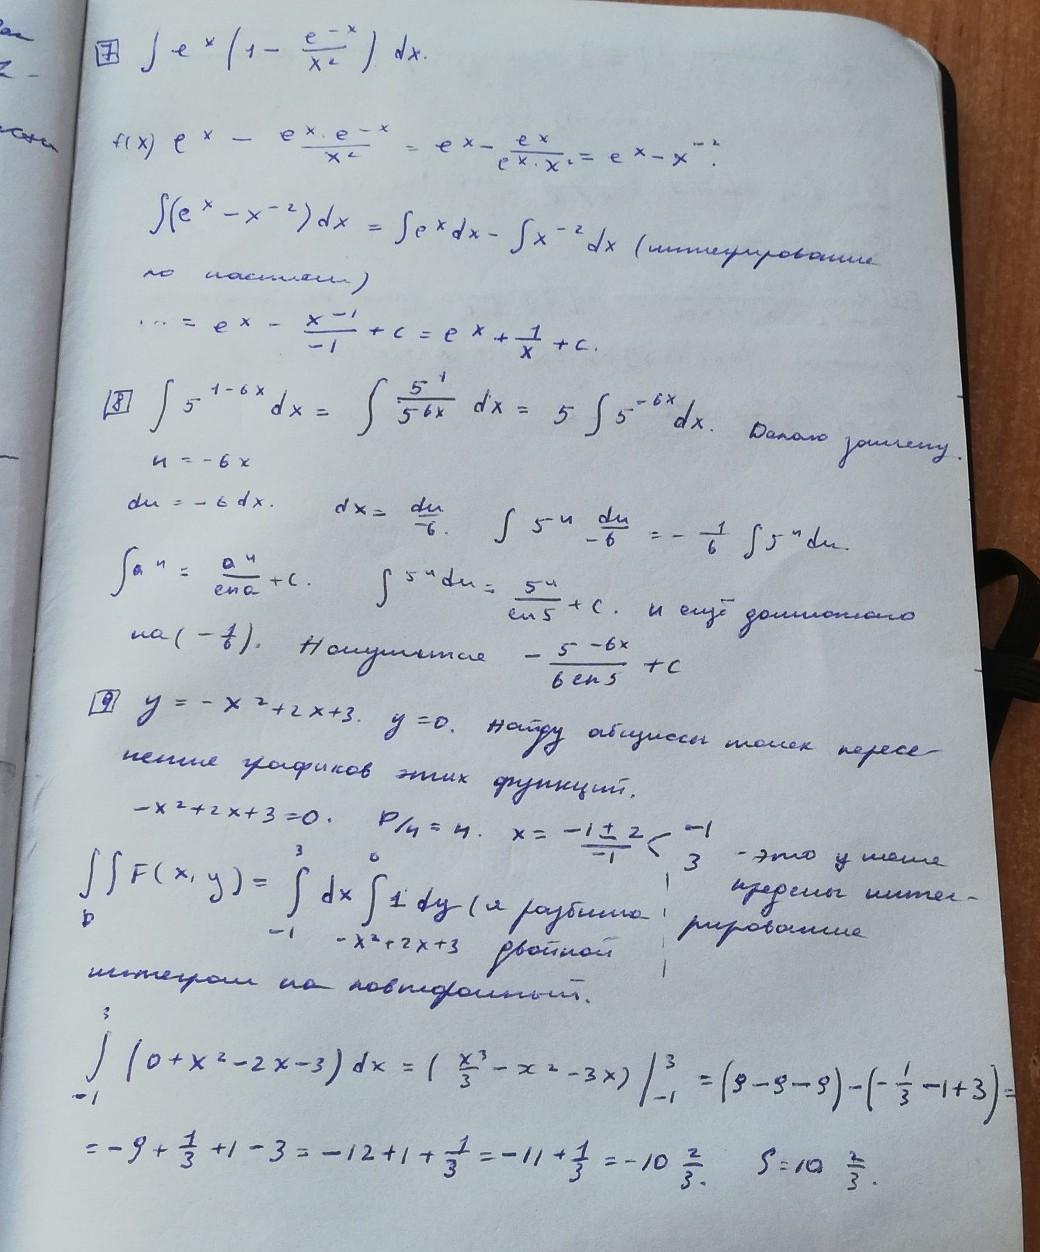 7 ∫ e^x (1 - e^-x / x^2) dx.
f(x) e^x - e^x · e^-x / x^2 = e^x - e^x / (e^x · x^2) = e^x - x^-2.
∫(e^x - x^-2) dx = ∫e^x dx - ∫x^-2 dx (интегрирование
по частям)
... = e^x - x^-1 / -1 + c = e^x + 1/x + c.
8 ∫ 5^(1-6x) dx = ∫ 5^1 / 5^6x dx = 5 ∫ 5^-6x dx. Делаю замену.
u = -6x
du = -6 dx. dx = du / -6. ∫ 5^u du / -6 = - 1/6 ∫ 5^u du.
∫a^u = a^u / ln a + c. ∫ 5^u du = 5^u / ln 5 + c. и ещё домножаю
на (- 1/6). Получится - 5^-6x / 6 ln 5 + c
9 y = -x^2 + 2x + 3. y = 0. Найду абсциссы точек пересе-
чение графиков этих функций.
-x^2 + 2x + 3 = 0. D/4 = 4. x = (-1 ± 2) / -1 < -1 3 - это у меня
пределы интег-
рирование
∫∫_D F(x, y) = ∫_-1^3 dx ∫_(-x^2+2x+3)^0 1 dy (я разбила
двойной
интеграл на повторный.
∫_-1^3 (0 + x^2 - 2x - 3) dx = (x^3/3 - x^2 - 3x) |_-1^3 = (9 - 9 - 9) - (- 1/3 - 1 + 3) =
= -9 + 1/3 + 1 - 3 = -12 + 1 + 1/3 = -11 + 1/3 = -10 2/3. S = 10 2/3.